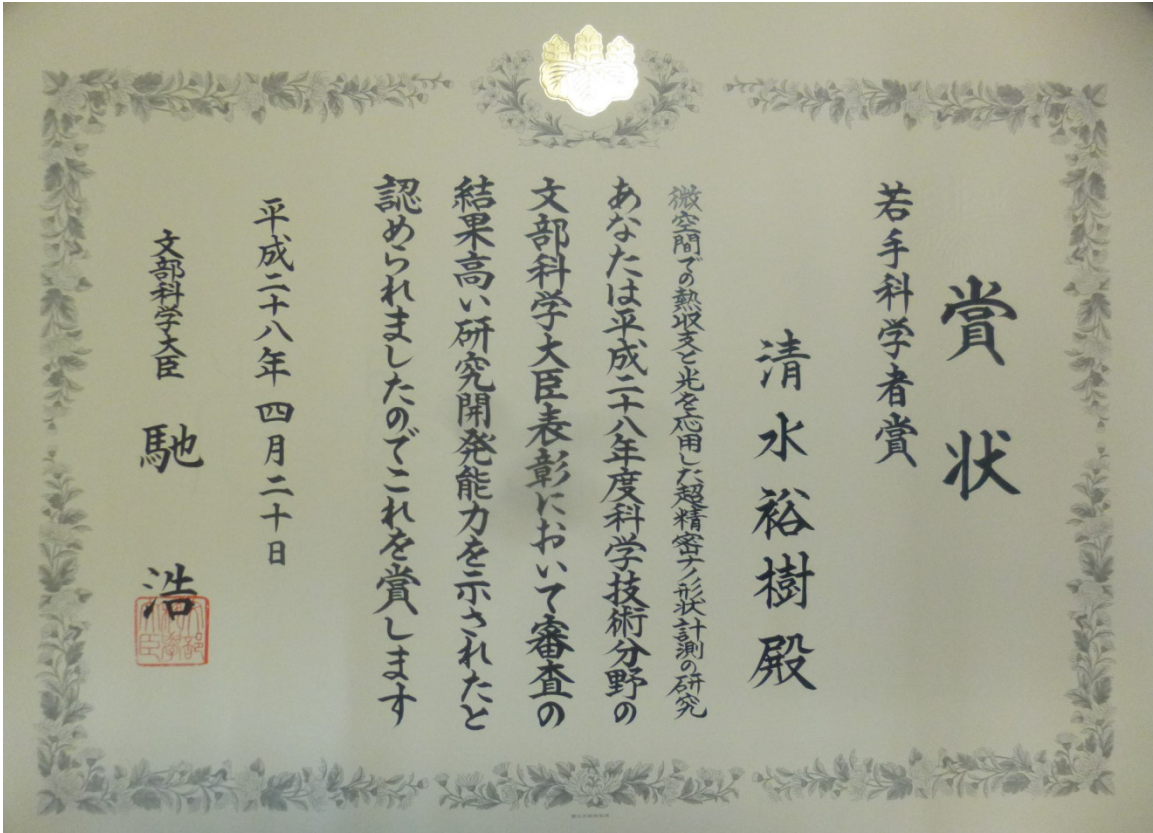 賞状
若手科学者賞
清水裕樹殿
微空間での熱収支と光を応用した超精密ナノ形状計測の研究
あなたは平成二十八年度科学技術分野の
文部科学大臣表彰において審査の
結果高い研究開発能力を示されたと
認められましたのでこれを賞します
平成二十八年四月二十日
文部科学大臣 馳浩